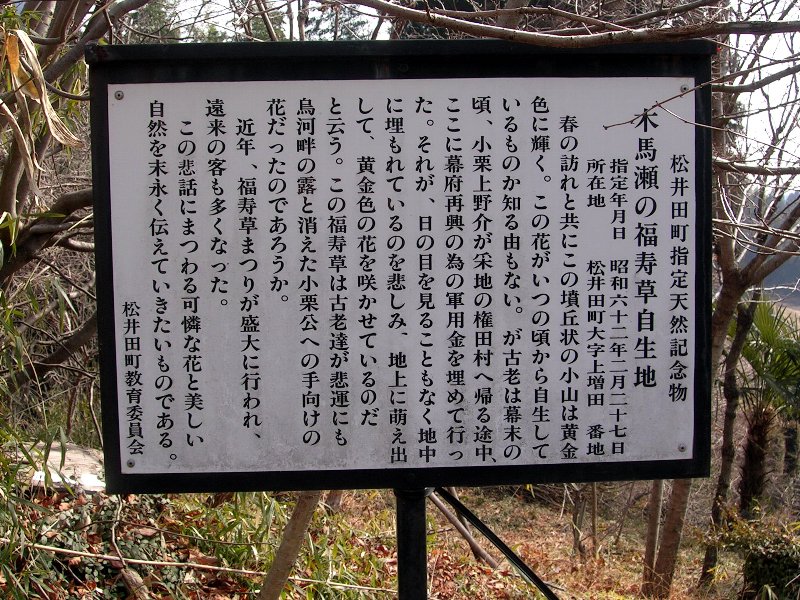 松井田町指定天然記念物
木馬瀬の福寿草自生地
指定年月日　昭和六十二年二月二十七日
所在地　松井田町大字上増田　番地
春の訪れと共にこの墳丘状の小山は黄金
色に輝く。この花がいつの頃から自生して
いるものか知る由もない。が古老は幕末の
頃、小栗上野介が采地の権田村へ帰る途中、
ここに幕府再興の為の軍用金を埋めて行っ
た。それが、日の目を見ることもなく地中
に埋もれているのを悲しみ、地上に萌え出
して、黄金色の花を咲かせているのだ
と云う。この福寿草は古老達が悲運にも
烏河畔の露と消えた小栗公への手向けの
花だったのであろうか。
近年、福寿草まつりが盛大に行われ、
遠来の客も多くなった。
この悲話にまつわる可憐な花と美しい
自然を末永く伝えていきたいものである。
松井田町教育委員会